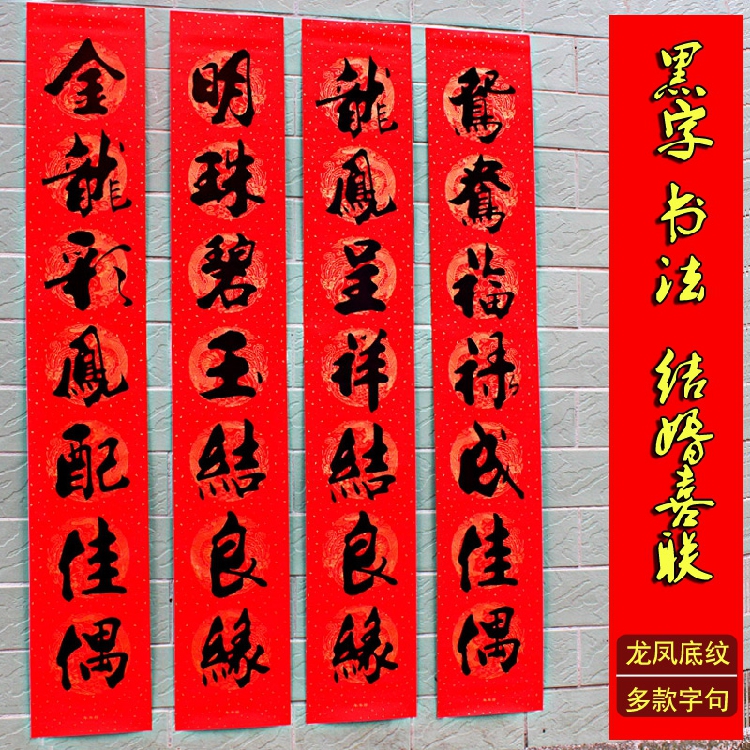 金龍彩鳳配佳偶
明珠碧玉結良緣
龍鳳呈祥結良緣
鴛鴦福禄成佳偶
黑字 书法 结婚喜联
龙凤底纹
多款字句